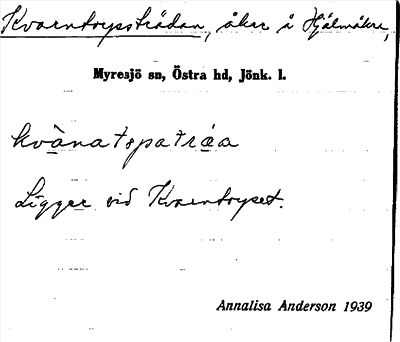 Kvarntorpsträdan, åker å Hjälmåkra,
Myresjö sn, Östra hd, Jönk. l.
kvànatspatráa
Ligger vid Kvarntorpet.
Annalisa Anderson 1939